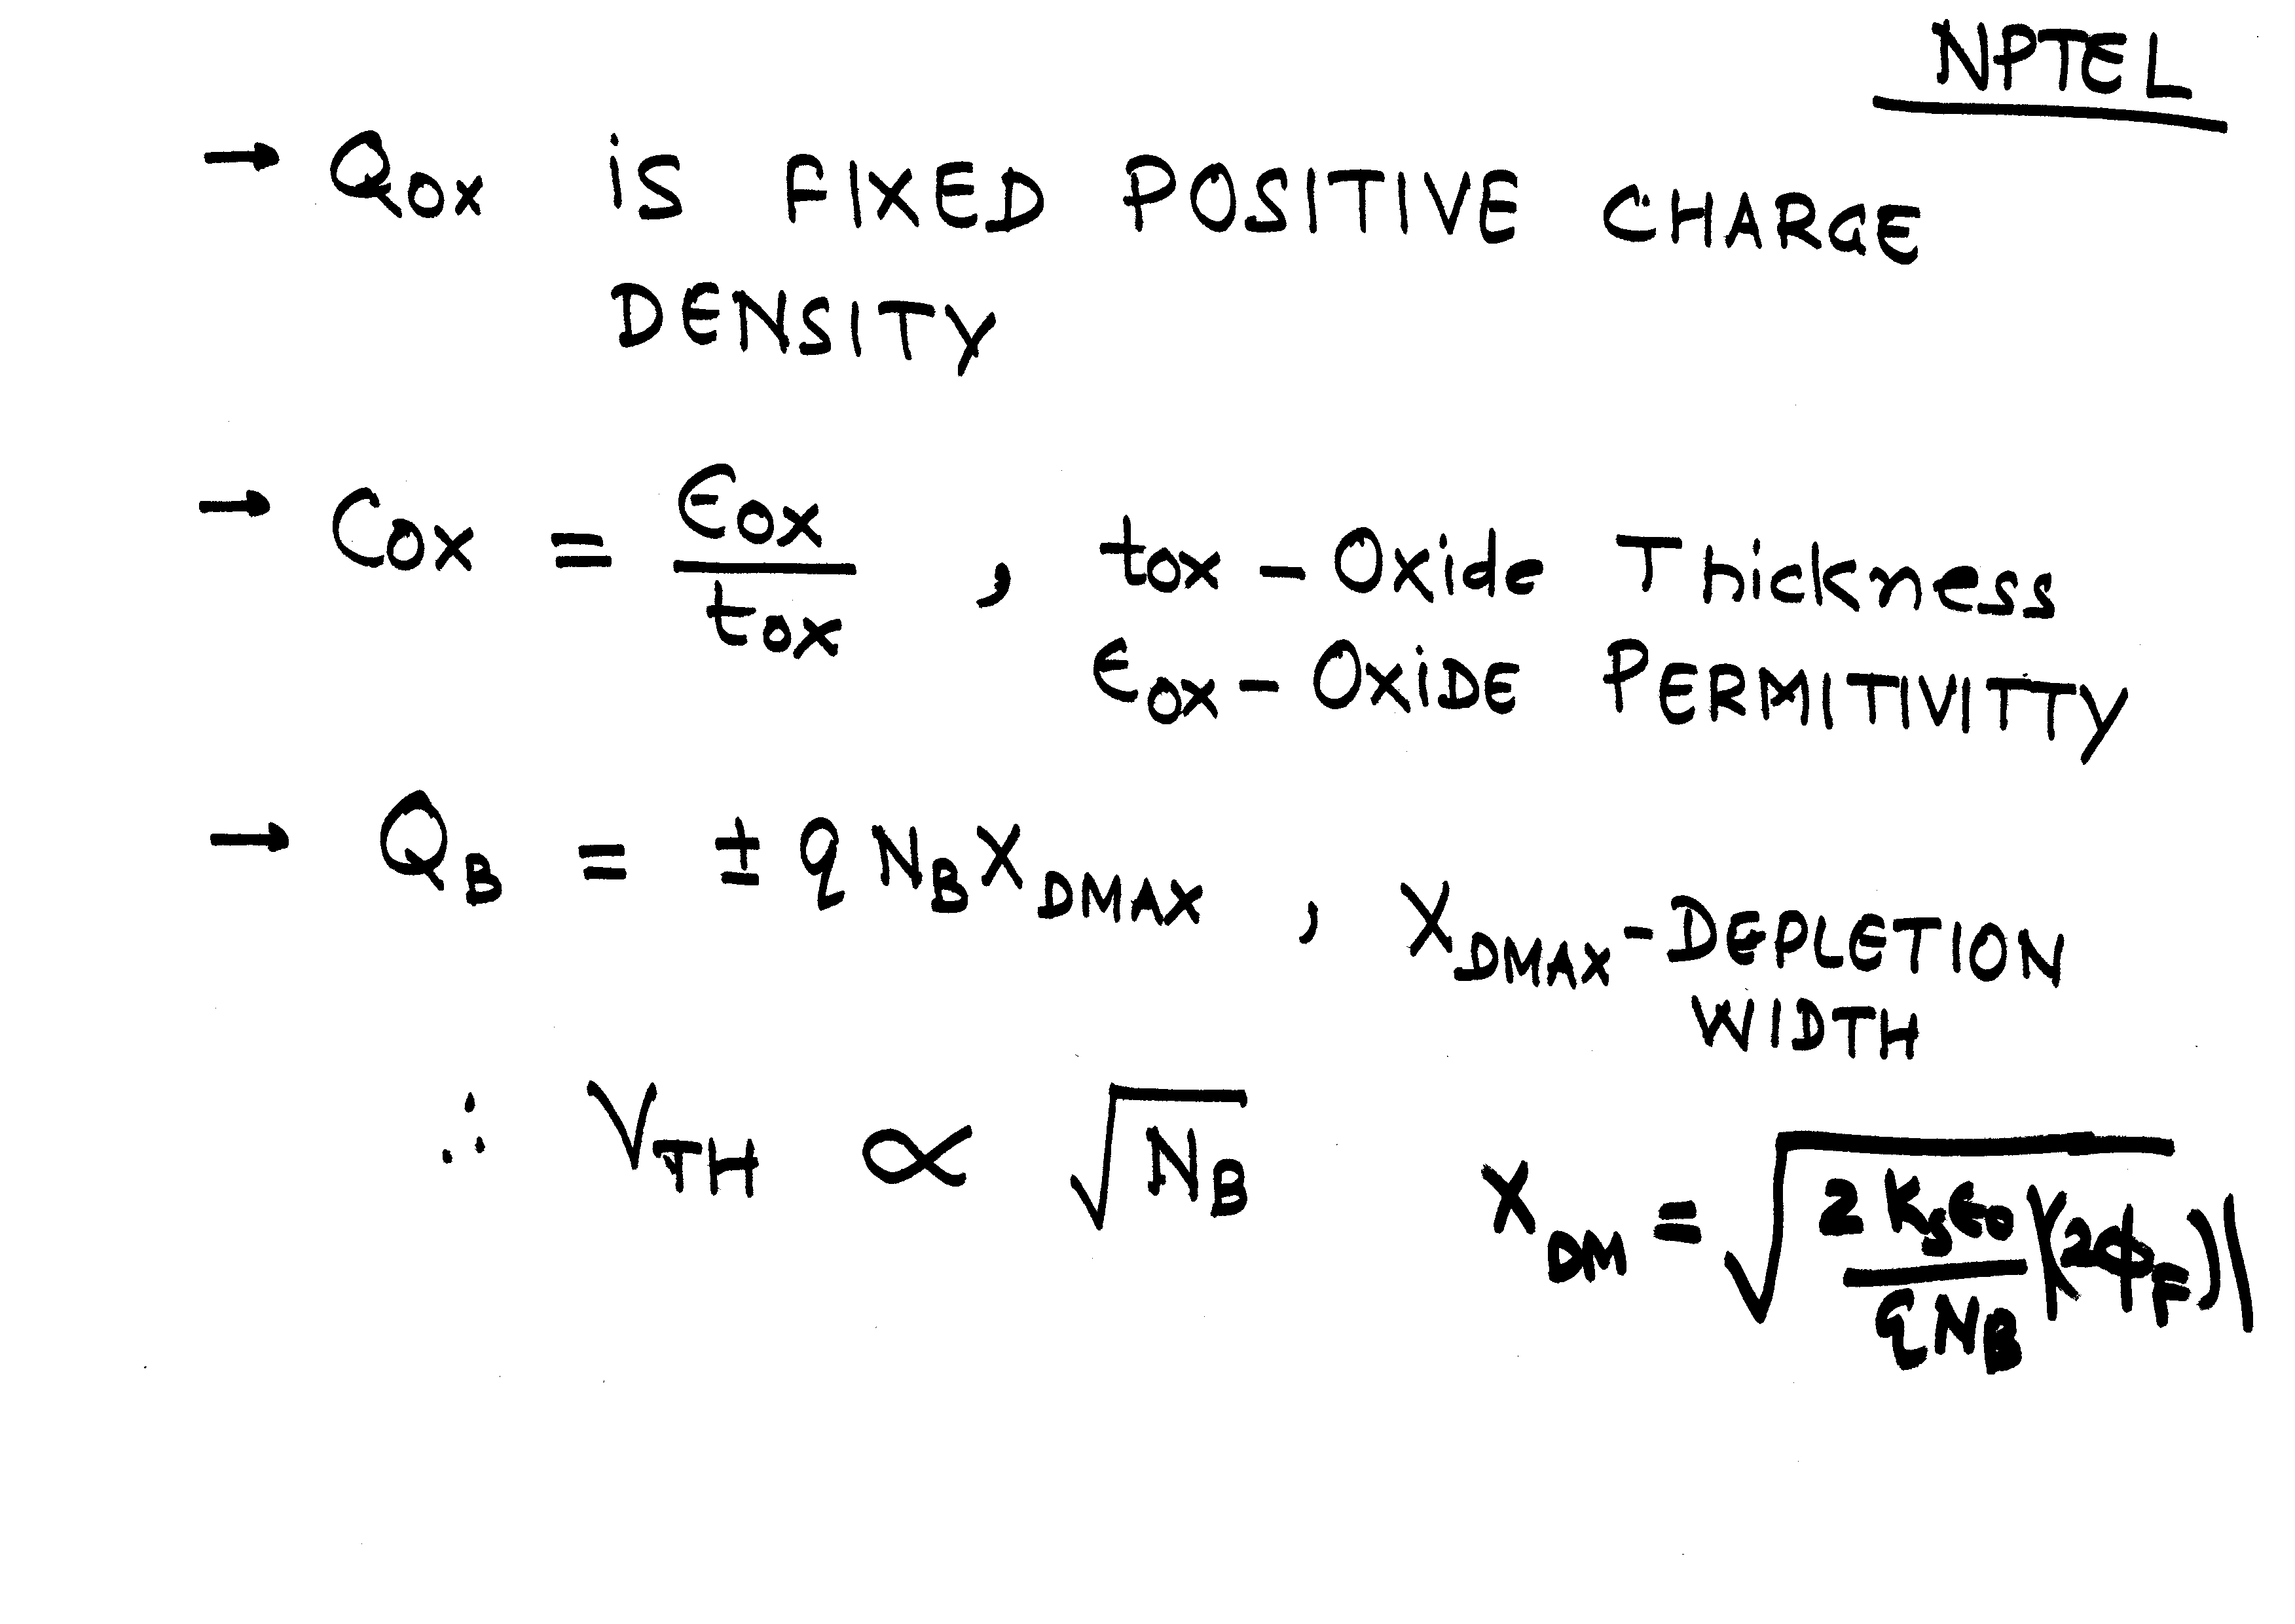 NPTEL
→ QOX is FIXED POSITIVE CHARGE
DENSITY
→ COX = ϵOX / tOX , tox - Oxide Thickness
ϵOX - OXiDE PERMITIVITTY
→ QB = ± q NB XDMAX , XDMAX - DEPLETION
WIDTH
∴ VTH ∝ √NB XDM = √(2 KS ϵ0 / q NB) |(2ϕF)|